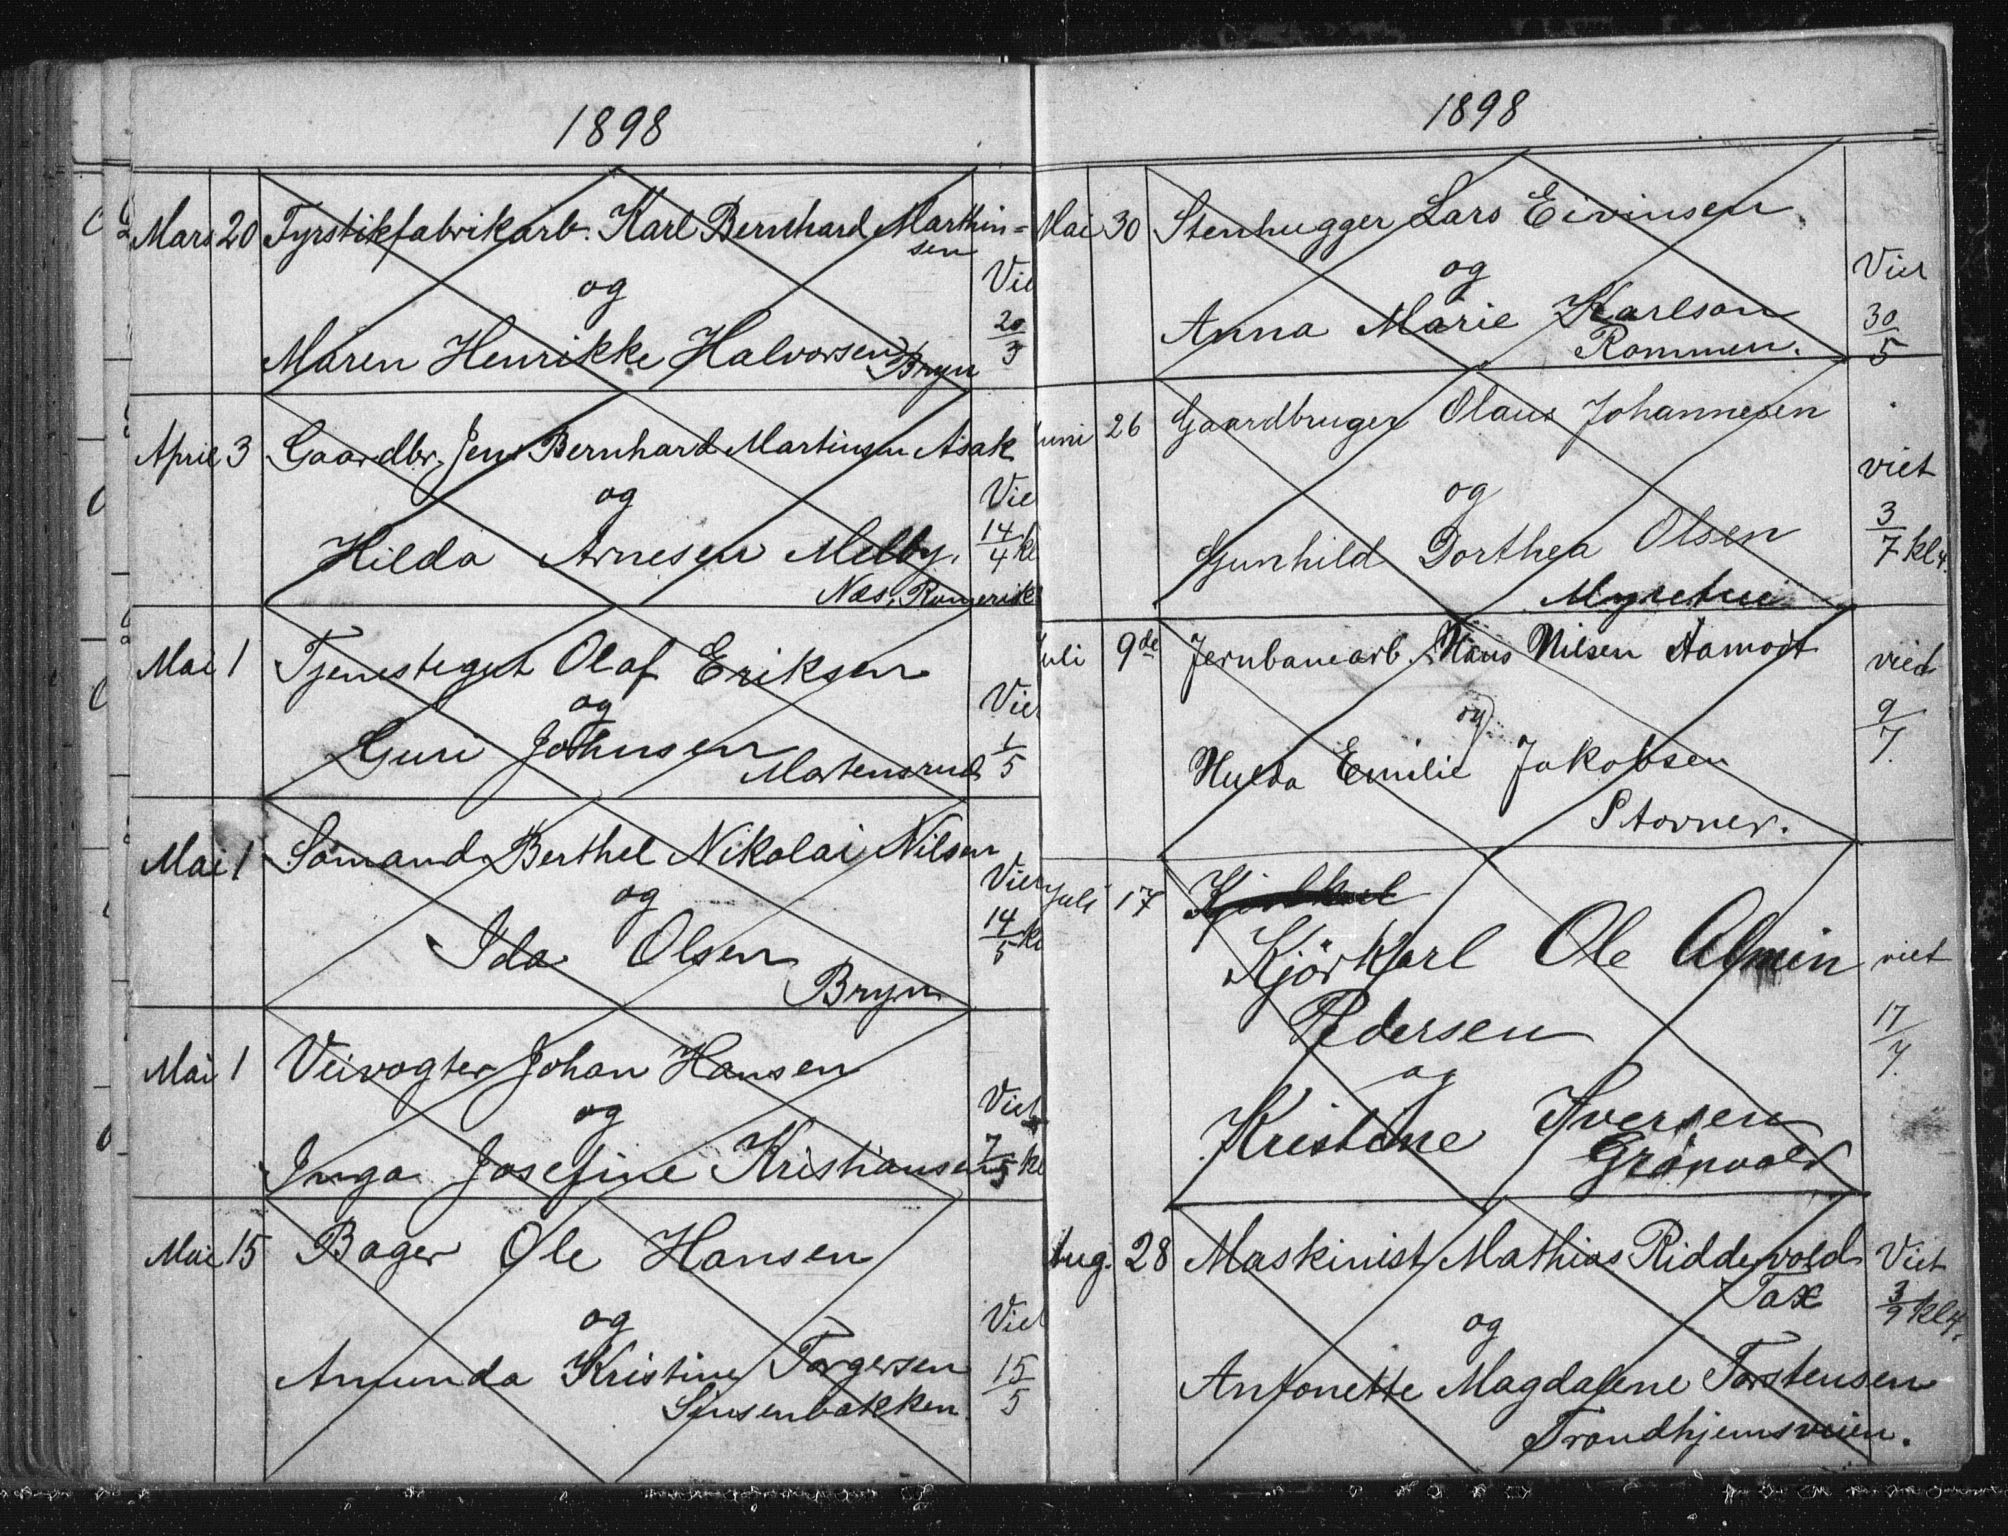 1898
Mars 20 Tyrstikfabrikarb. Karl Bernhard Marthin=
sen
og
Viet
Maren Henrikke Halvorsen 20/3
Bryn
April 3 Gaardbr. Jens Bernhard Martinsen Asak
og
Vie
Hilda Arnesen Melby. 14/4 kl
Næs, Romerike
Mai 1 Tjenestegut Olaf Eriksen
og
Viet
Guri Johnsen 1/5
Martensrud
Mai 1 Sömand Berthel Nikolai Nilsen
og
Viet
Ida Olsen 14/5 kl
Bryn
Mai 1 Veivogter Johan Hansen
og
Viet
Inga Josefine Kristiansen 7/5 kl
Mai 15 Bager Ole Hansen
og
Viet
Amunda Kristine Torgersen 15/5
Sinsenbakken
1898
Mai 30 Stenhugger Lars Eivinsen
og
Viet
Anna Marie Karlson 30/5
Rommen.
Juni 26 Gaardbruger Olaus Johannesen
viet
og
3/7 kl 4.
Gunhild Dorthea Olsen
Juli 9de Jernbanearb. Hans Nilsen Aamodt viet
og
9/7
Hulda Emilie Jakobsen
Stovner.
Juli 17
Kjörkarl Ole Almin viet
Pedersen 17/7
og
Kristine Iversen
Grönvold
Aug. 28 Maskinist Mathias Riddervold Viet
Fax 3/9 kl 4.
og
Antonette Magdalene Torstensen
Trondhjemsveien.